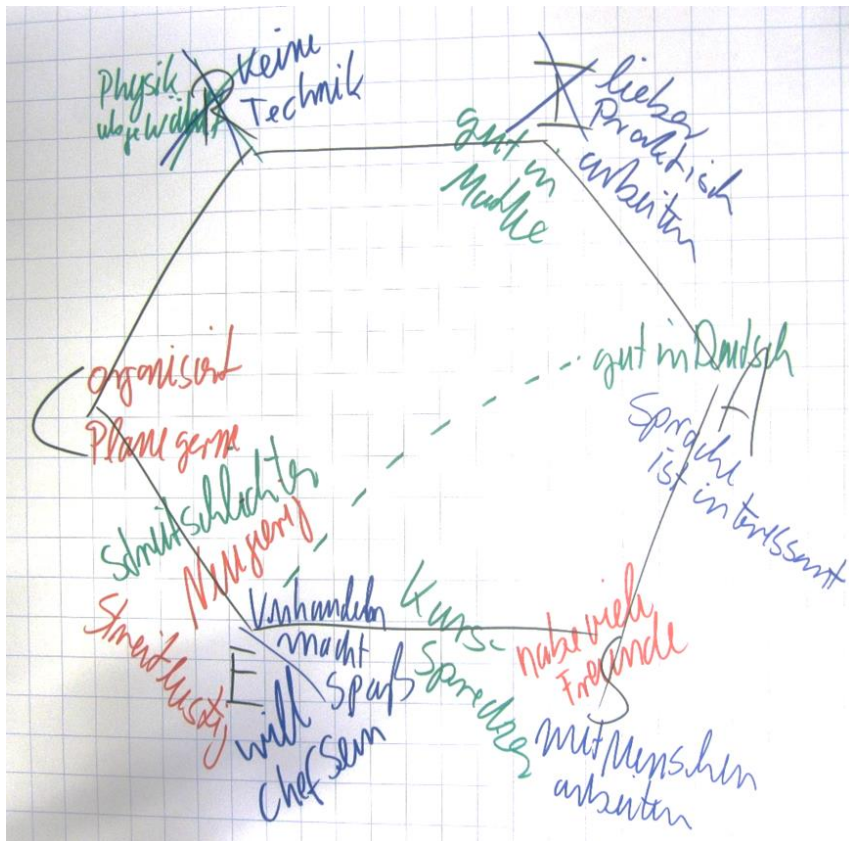 Physik
abgewählt
R
Keine
Technik
I
lieber
Praktisch
arbeiten
gut in
Mathe
organisiert
Plane gerne
C
gut in Deutsch
A
Sprache
ist interessant
Streitschlichter
Neugierig
Streitlustig
Verhandeln
macht
Spaß
E
will
Chef sein
Kurs-
Sprecher
habe viele
Freunde
S
mit Menschen
arbeiten